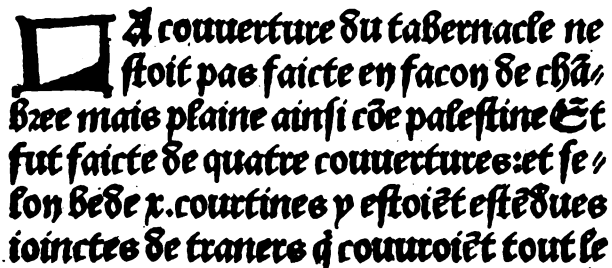 LA couuerture du tabernacle ne
stoit pas faicte en facon de chã⸗
bree mais plaine ainsi cõe palestine Et
fut faicte de quatre couuertures: et se⸗
lon bede x. courtines y estoiẽt estẽdues
ioinctes de trauers q̃ couuroiẽt tout le